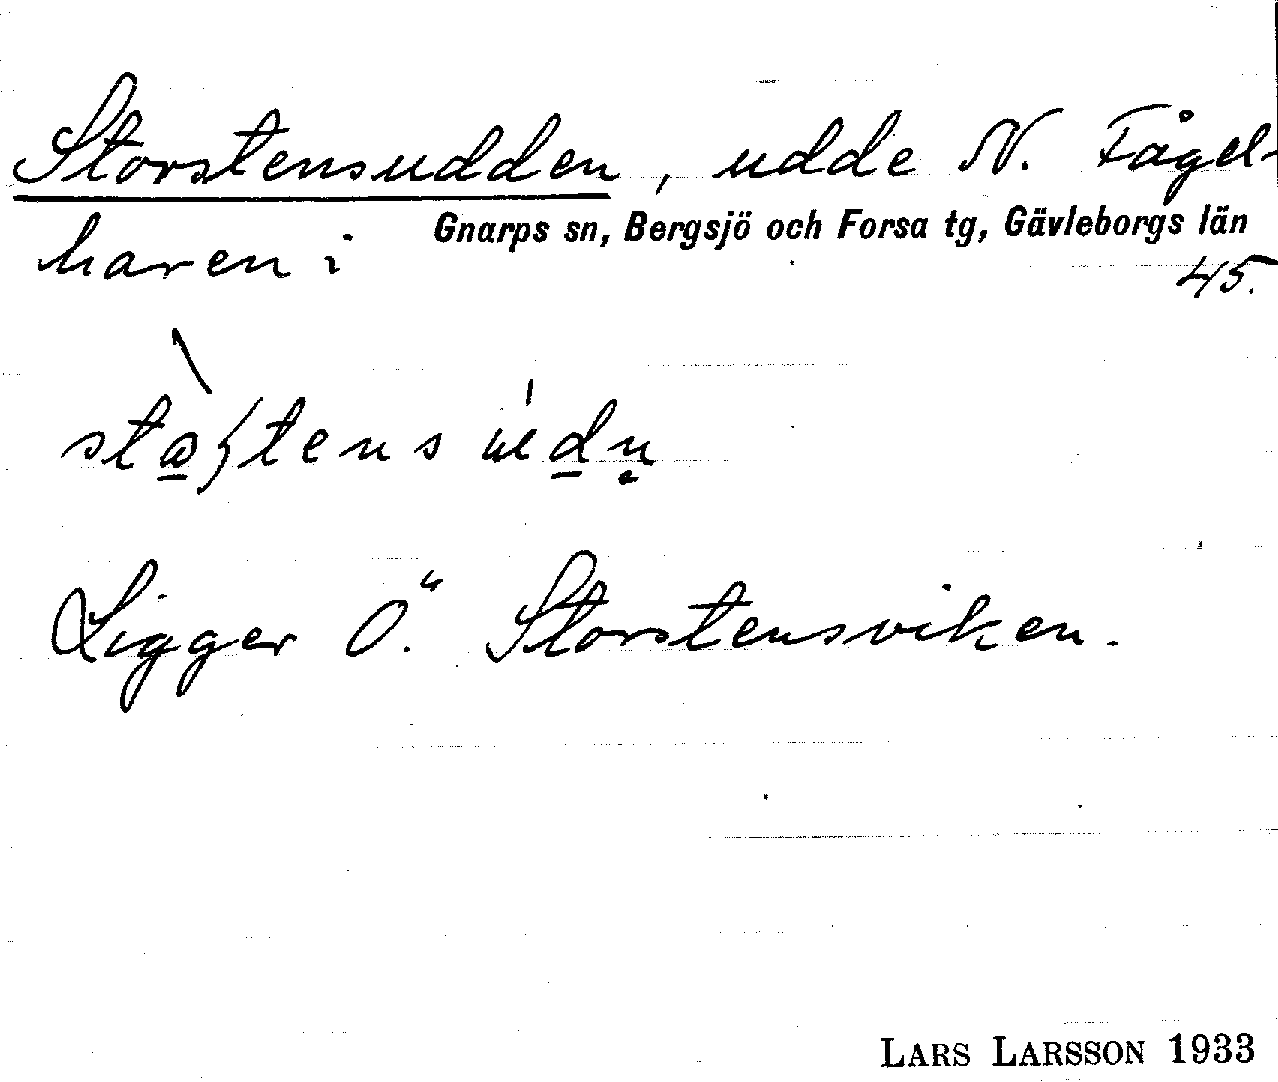 Storstensudden, udde N. Fågel-
haren i Gnarps sn, Bergsjö och Forsa tg, Gävleborgs län
45.
Ligger Ö. Storstensviken.
LARS LARSSON 1933